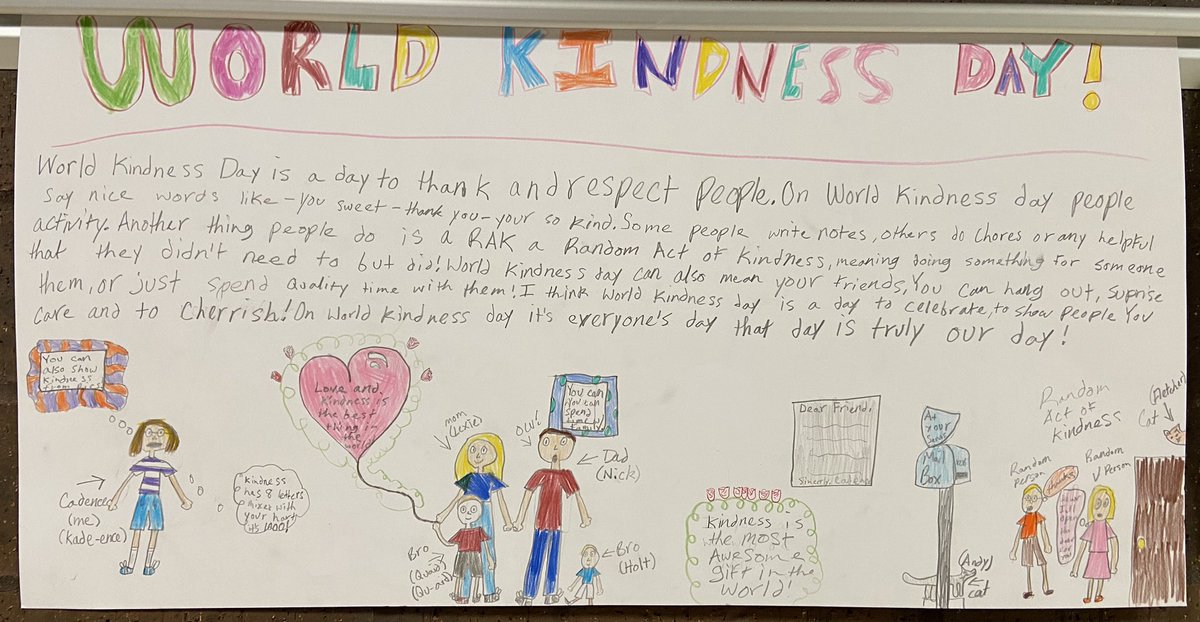 WORLD KINDNESS DAY!
World Kindness Day is a day to thank and respect people. On World Kindness day people
say nice words like - you sweet - thank you - your so kind. Some people write notes, others do chores or any helpful
activity. Another thing people do is a RAK a Random Act of Kindness, meaning doing something for someone
that they didn't need to but did! World Kindness day can also mean your friends, You can hang out, suprise
them, or just spend quality time with them! I think World Kindness day is a day to celebrate, to show people you
care and to Cherrish! On World Kindness day it's everyone's day that day is truly our day!
You can
also show
kindness
Cadence
(me)
(kade-ence)
kindness
has 8 letters
mixed with
your hart
it's 1000!
Love and
Kindness is
the best
thing in
the
world
mom
(Lexie)
OW!
You can
you can
spend
time w/
family
Dad
(Nick)
Bro
(Quaid)
(Qu-aid)
Bro
(Holt)
Dear Friend,
Kindness is
the most
Awesome
gift in the
World!
At
your
Mail
Box
(Andy)
cat
Random
Act of
kindness
Random
Person
thanks
Random
Person
(Fletcher)
Cat